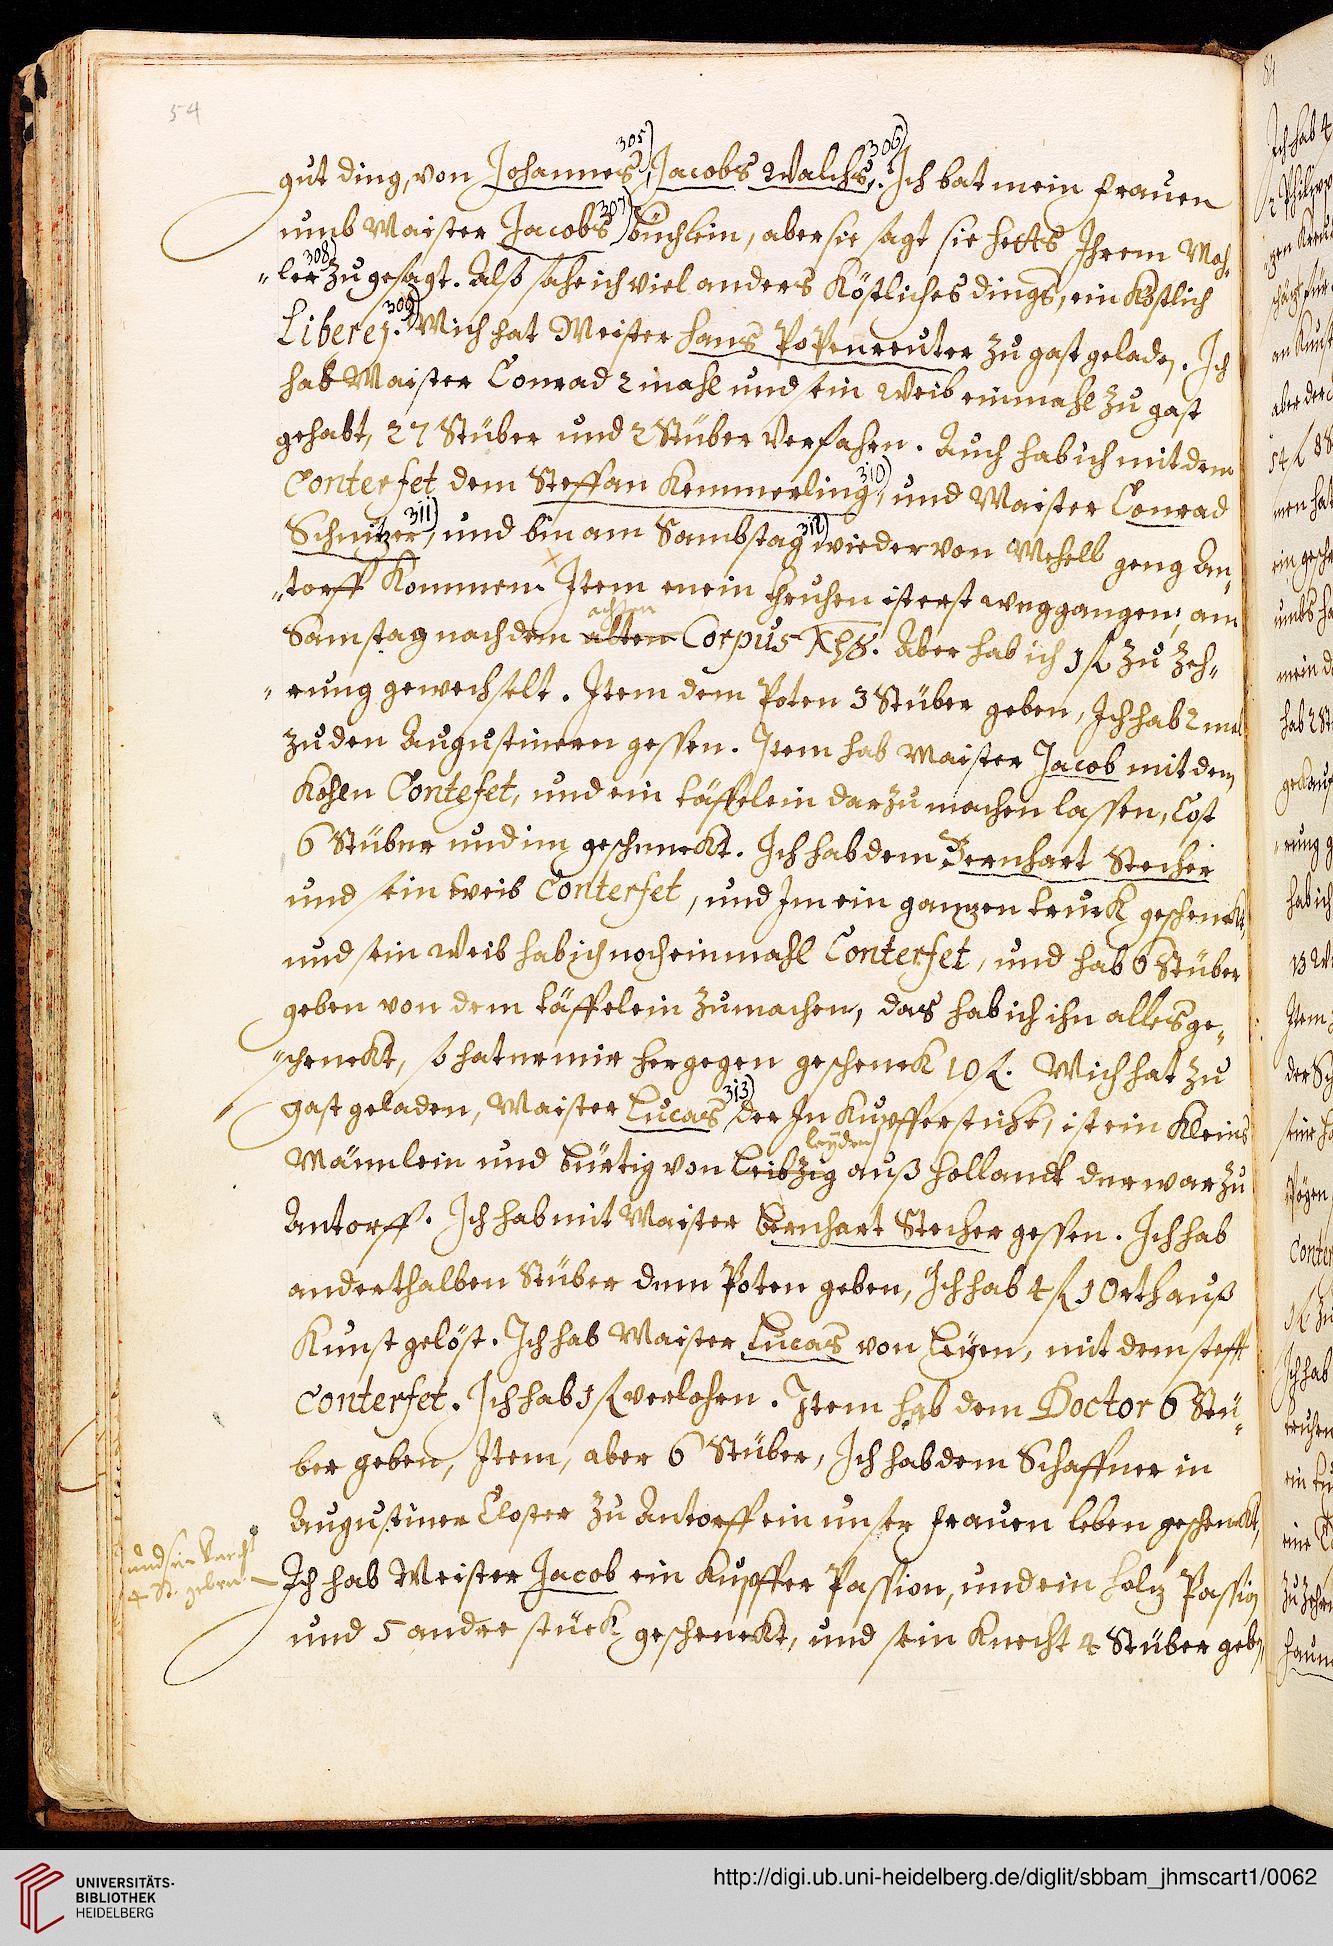 54
gut ding, von Johannes, 305) Jacobs Walchs. 306) Ich bat mein frauen
umb Maister Jacobs 307) büchlein, aber sie sagt sie hetts Ihrem Mah-
„ler 308) zu gesagt. Alß sahe ich viel anders Köstliches dings, ein Köstlich
Liberej. 309) Mich hat Meister hans Popenreuter zu gast geladen. Ich
hab Maister Conrad 2 mahl und sein Weib einmahl zu gast
gehabt, 27 Stüber und 2 Stüber Verfahrn. Auch hab ich mit dem
Conterfet dem Steffan Kemmerling, 310) und Maister Conrad
Schnitzer, 311) und bin am Sambstag 312) wieder von Mehell geng An„
„torff Kommen. Item mein thruhen ist erst weggangen, am
Samstag nach dem alten achten Corpus Xps. Aber hab ich 1 fl zu Zeh„
„rung gewechselt. Item dem Poten 3 Stüber geben, Ich hab 2 mal
zu den Augustinern gessen. Item hab Maister Jacob mit dem
Kohln Contefet, und ein täffelein darzu machen lassen, Cost
6 Stüber und im geschenckt. Ich hab dem Bernhart Stecher
und sein Weib Conterfet, und Im ein ganzen truck geschenckt,
und sein Weib hab ich noch einmahl Conterfet, und hab 6 Stüber
geben von dem täffelein zumachen, das hab ich ihn alles ge„
„schenckt, so hat er mir hergegen geschenck 10 fl. Mich hat zu
gast geladen, Maister Lucas 313) der In Kupffer sticht, ist ein Kleins
Männlein und bürtig von Leibzig leyden auß hollandt der war zu
Antorff. Ich hab mit Maister Bernhart Stecher gessen. Ich hab
anderthalben Stüber dem Poten geben, Ich hab 4 fl 1 Orth auß
Kunst gelöst. Ich hab Maister Lucas von Leyen, mit dem stefft
Conterfet. Ich hab 1 fl verlohrn. Item hab dem Doctor 6 Stü„
ber geben, Item, aber 6 Stüber, Ich hab dem Schaffner in
Augustiner Closter zu Antorff ein unser frauen leben geschenckt,
und sein knecht
4 St. geben
Ich hab Meister Jacob ein Kupffer Passion, und ein holz Passion
und 5 andre stück geschenckt, und sein Knecht 4 Stüber geben,
UNIVERSITÄTS-
BIBLIOTHEK
HEIDELBERG
http://digi.ub.uni-heidelberg.de/diglit/sbbam_jhmscart1/0062